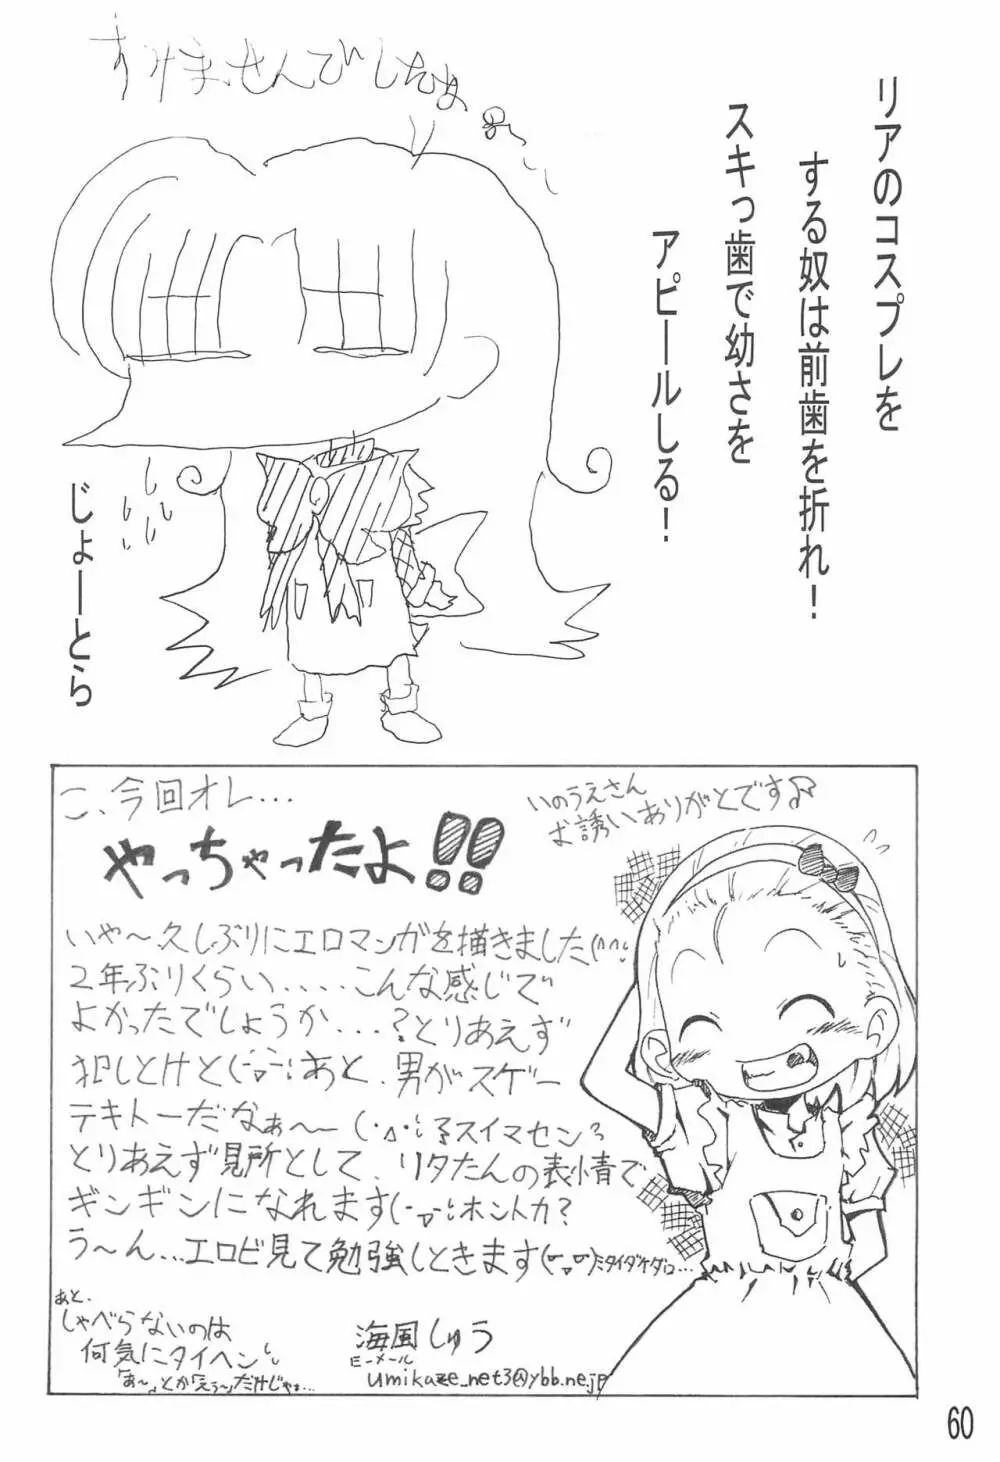 すみませんでしたよ
リアのコスプレを
する奴は前歯を折れ!
スキっ歯で幼さを
アピールしる!
じょーとら
こ、今回オレ…
やっちゃったよ!!
いのうえさん
お誘いありがとです♪
いや〜久しぶりにエロマンガを描きました(^^;
2年ぶりくらい.....こんな感じで
よかったでしょうか...?とりあえず
犯しとけと(-▽-;あと、男がスゲー
テキトーだなぁ〜〜(・△・;スイマセン
とりあえず見所として、リタたんの表情で
ギンギンになれます(-▽-;ホントカ?
う〜ん...エロビ見て勉強しときます
あと、
しゃべらないのは
何気にタイヘン
「あ〜」とか「えぅ〜」だけじゃぁ...
海風しゅう
Eーメール
umikaze_net3@ybb.ne.jp
60